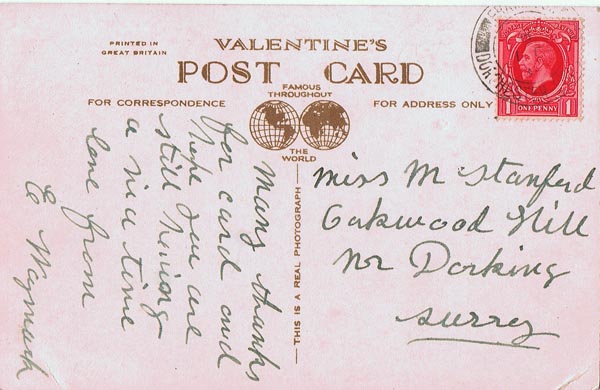 PRINTED IN
GREAT BRITAIN
VALENTINE'S
POST CARD
FAMOUS
THROUGHOUT
THE
WORLD
FOR CORRESPONDENCE
FOR ADDRESS ONLY
THIS IS A REAL PHOTOGRAPH
ONE PENNY
1 1
Many thanks
for card and
hope you are
still having
a nice time
love from
E
Miss M Stanford
Oakwood Hill
Nr Dorking
Surrey